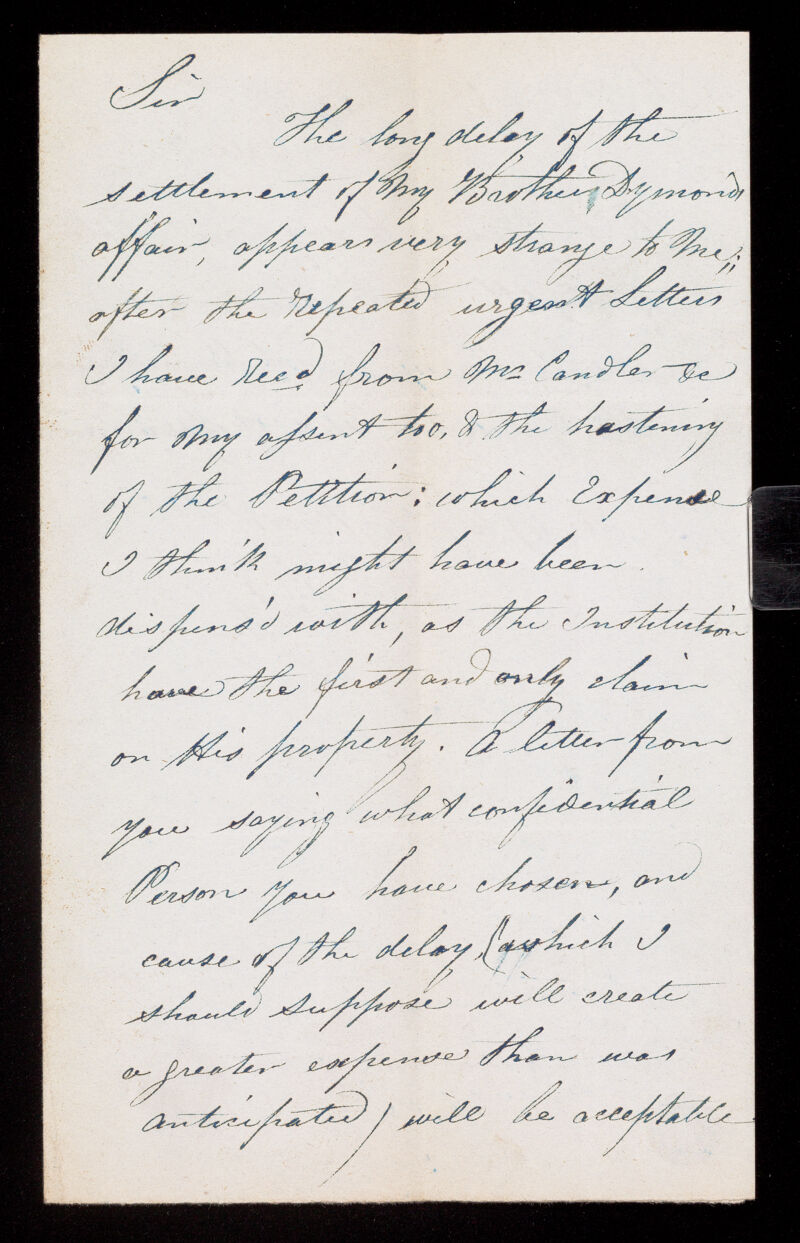 Sir
The long delay of the
settlement of My Brother, Dymonds
affair, appears very strange to Me,;
after the repeated urgent Letters
I have Recd from Mr Candler &c
for My assent too, & the hastening
of the Petition: which Expense
I think might have been
dispens'd with, as the Institution
have the first and only claim
on His property. A letter from
you saying what confidential
Person you have chosen, and
cause of the delay, (which I
should suppose will create
a greater expense than was
anticipated) will be acceptable